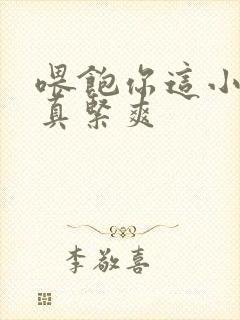 喂飽你這小
真緊爽
李敬喜